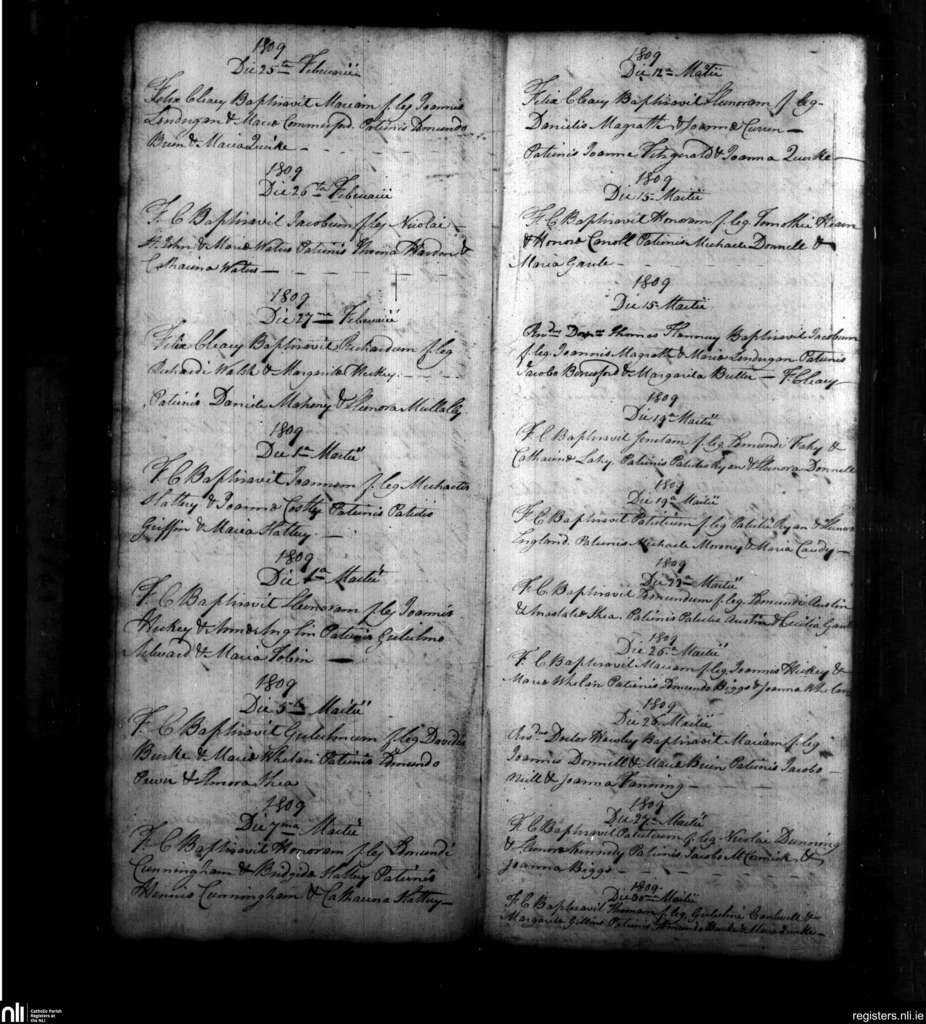 1809
Die 25ta Februarii
Felix Cleary Baptisavit Mariam f. leg Joannis
Londregan & Mariæ Commerford. Patrinis Edmundo
Brien & Maria Quirke
1809
Die 26ta Februarii
F. C Baptisavit Jacobum f. leg Nicolai
St. John & Mariæ Waters Patrinis &
Catharina Waters
1809
Die 27ma Februarii
Felix Cleary Baptisavit Richardum f. leg
Richardi Walsh & Margarita Hickey.
Patrinis Daniele Mahony & Elenora Mullally
1809
Die 1ma Martii
F. C Baptisavit Joannem f. leg Michaelis
Slattery & Joannæ Costley Patrinis Patritio
Griffin & Maria Slattery
1809
Die 1a Martii
F. C Baptisavit Elenoram f. leg Joannis
Hickey & Annæ Anglin Patrinis Gulielmo
& Maria Tobin
1809
Die 5ta Martii
F. C Baptisavit Gulielmum f. leg Davidis
Burke & Mariæ Whelan Patrinis Edmundo
Power & Shea
1809
Die 7ma Martii
F. C Baptisavit Honoram f. leg Edmundi
Cunningham & Bridgida Slattery Patrinis
Cunningham & Catharina Slattery
1809
Die 12a Martii
Felix Cleary Baptisavit Elenoram f. leg
Danielis Magrath & Joannæ Curren
Patrinis Joanne Fitzgerald & Joanna Quirke
1809
Die 15 Martii
F. C Baptisavit Honoram f. leg. Timothei
& Honoræ Caroll Patrinis Michaele Donnell &
Maria Gaule
1809
Die 15 Martii
Thomas Flannery Baptisavit Jacobum
f. leg. Joannis Magrath & Maria Londregan Patrinis
Jacobo Beresford & Margarita Butler — F. Cleary
1809
Die 19a Martii
F. C Baptisavit f. leg Edmundi Fahy &
Catharinæ Lahy Patrinis Patritio Ryan & Elenora Donnell
1809
Die 19a Martii
F. C Baptisavit Patritium f. leg Patritii Ryan & Elenora
England. Patrinis Michaele Moroney & Maria
1809
Die 22a Martii
F. C Baptisavit Edmundum f. leg. Edmundi Austin
& Anastatiæ Shea. Patrinis Patritio Austin & Cecilia
1809
Die 26a Martii
F. C Baptisavit Mariam f. leg Joannis Hickey &
Mariæ Whelan Patrinis Edmundo Biggs & Joanna Whelan
1809
Die 26 Martii
Doctor Hawley Baptisavit Mariam f. leg
Joannis Donnell & Mariæ Brien Patrinis Jacobo
Neill & Joanna Fanning
1809
Die 27a Martii
F. C Baptisavit Patritium f. leg Nicolai Dunning
& Elenoræ Kennedy Patrinis Jacobo &
Joanna Biggs
1809
Die 30a Martii
F. C Baptisavit Thomam f. leg. Gulielmi Cantwell &
Margarita Patrinis Edmundo Burke & Maria Quirke
nli
Catholic Parish
Registers at
the NLI
registers.nli.ie